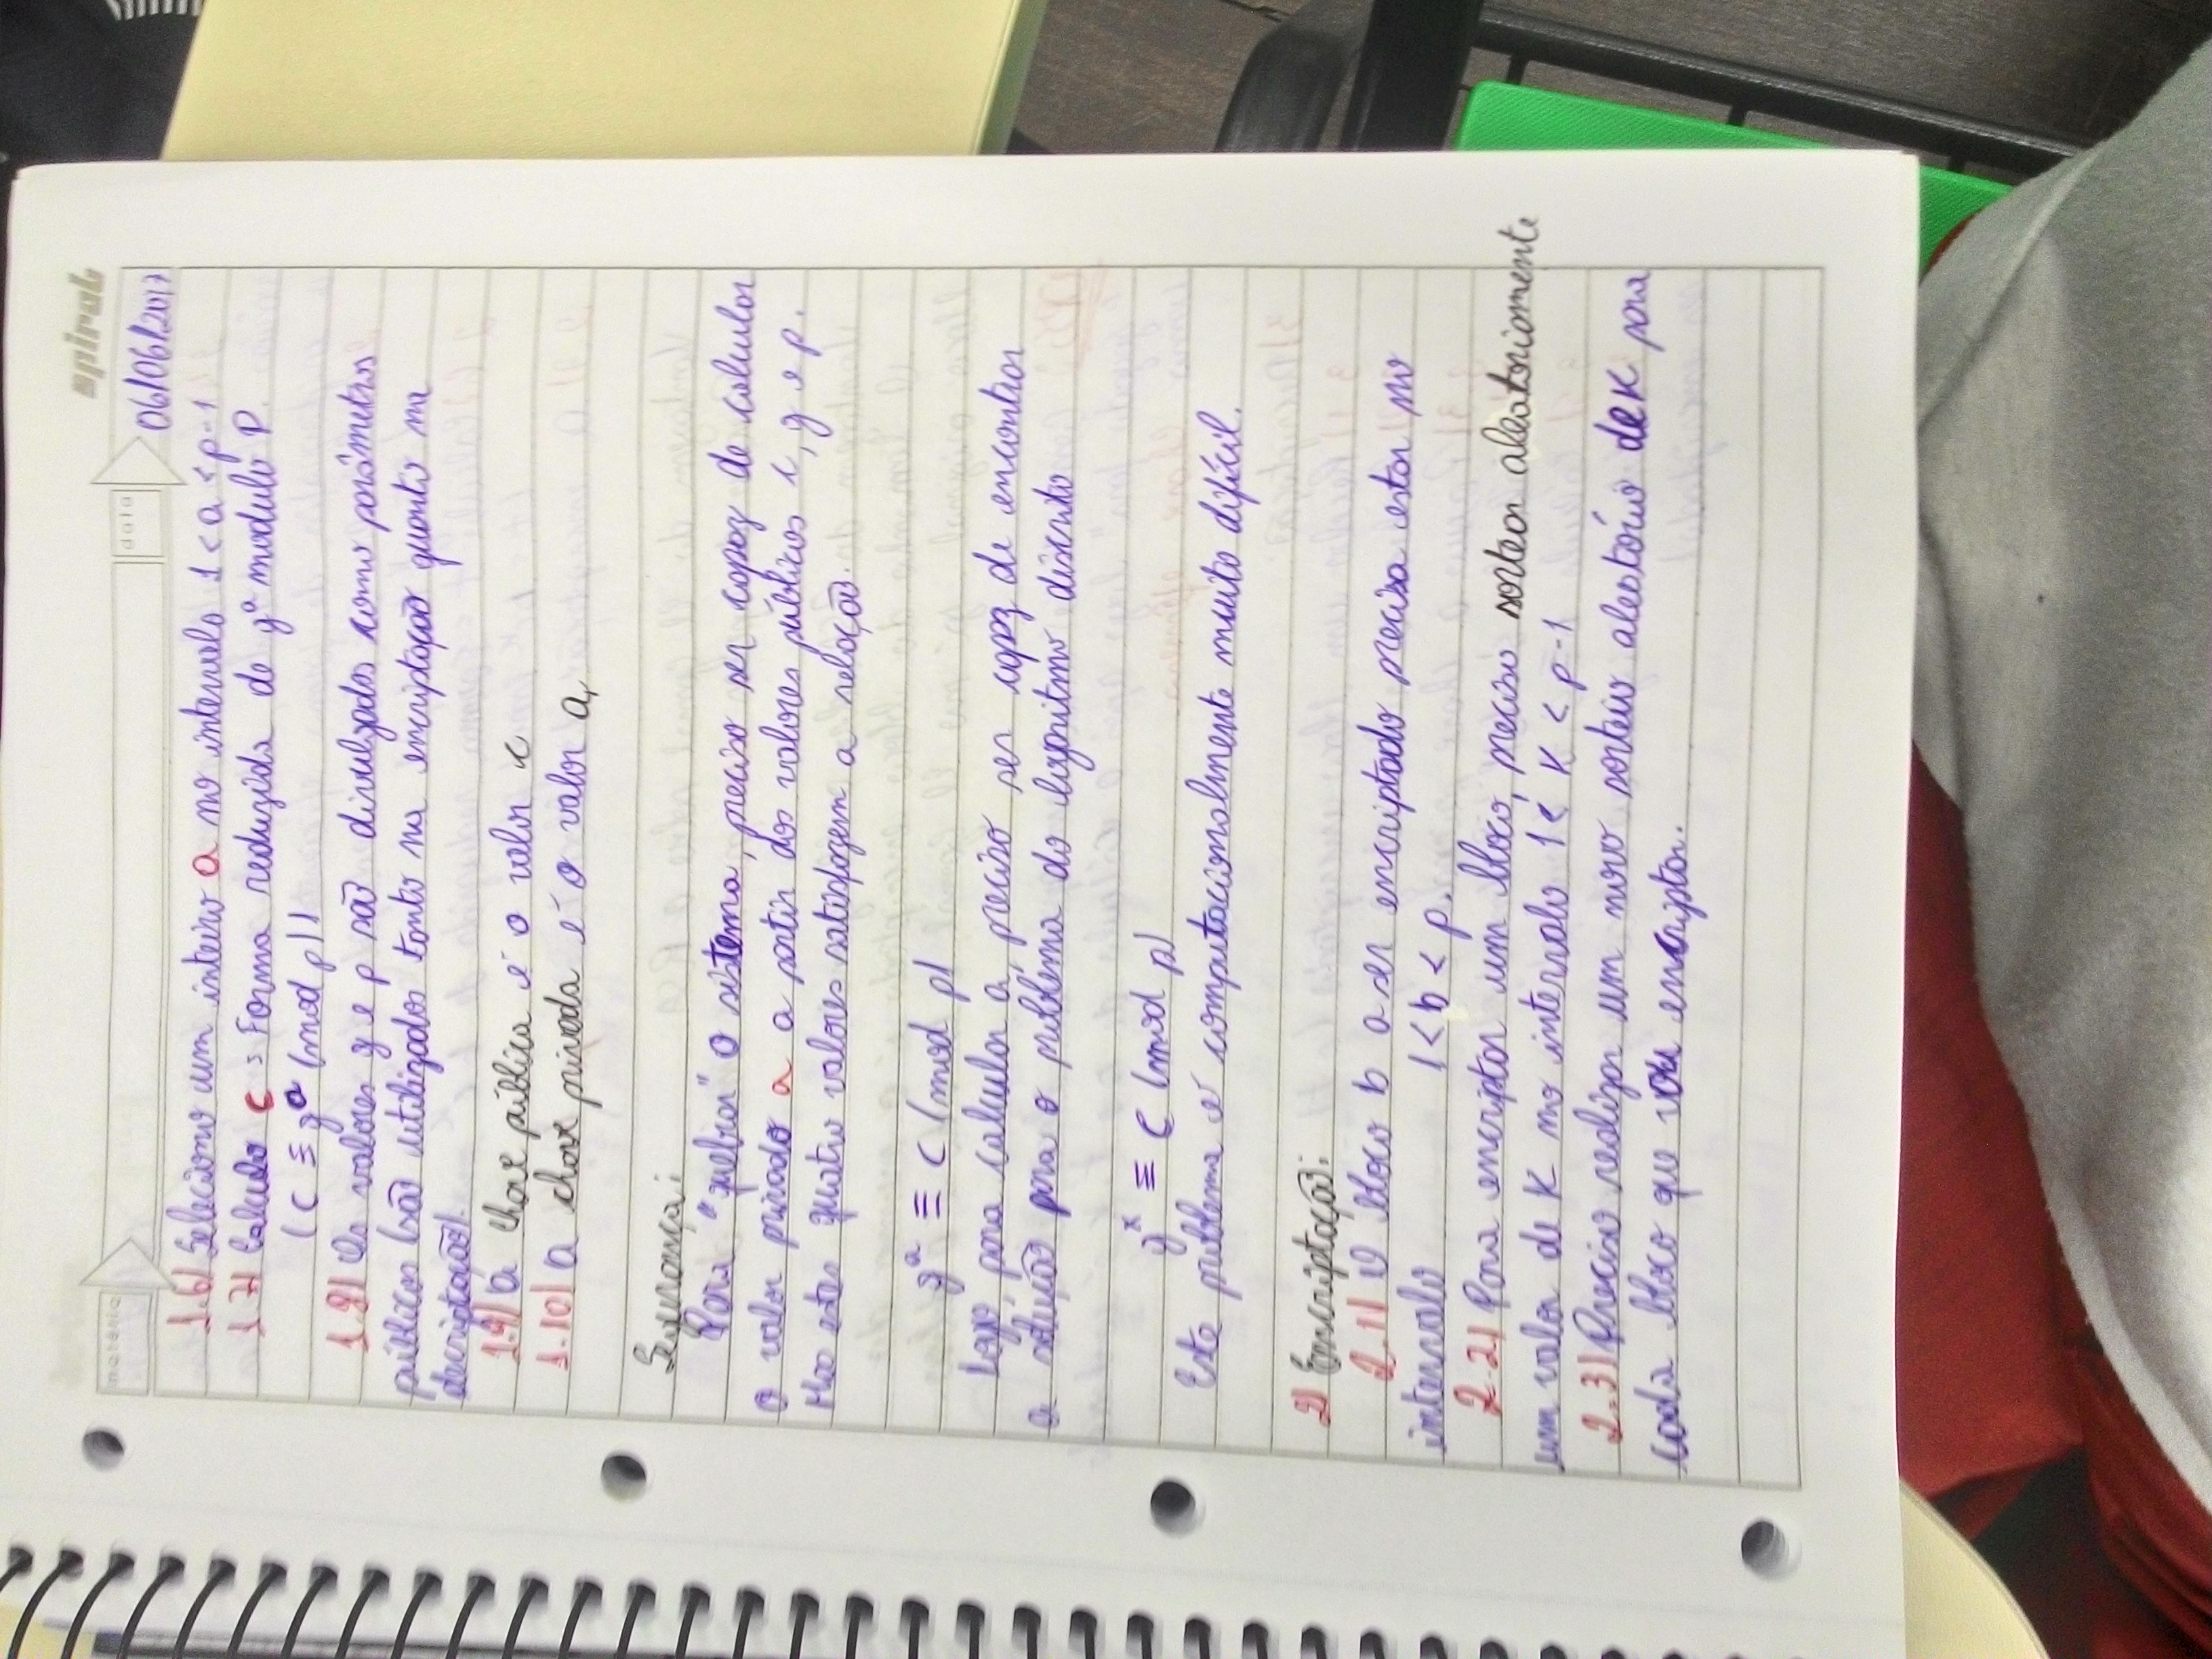 spiral
matéria
data
06/06/2017
1.6) Seleciono um inteiro a no intervalo 1 < a < p-1
1.7) Calculo c = Forma reduzida de gᵃ modulo P.
(C ≡ gᵃ (mod p))
1.8) Os valores g e p são divulgados como parâmetros
públicos (são utilizados tanto na encriptação quanto na
decriptação).
1.9) A chave pública é o valor c
1.10) A chave privada é o valor a,
Segurança:
Para "quebrar" o sistema, preciso ser capaz de calcular
o valor privado a a partir dos valores públicos c, g e p.
Mas estes quatro valores satisfazem a relação.
gᵃ ≡ C (mod p)
Logo, para calcular a, preciso ser capaz de encontrar
a solução para o problema do logaritmo discreto
gˣ ≡ C (mod p)
Este problema é computacionalmente muito difícil.
2) Encriptação:
2.1) O bloco b a ser encriptado precisa estar no
intervalo 1 < b < p.
2.2) Para encriptar um bloco, preciso sortear aleatoriamente
um valor de K no intervalo 1 < K < p-1
2.3) Preciso realizar um novo sorteio aleatório de K para
cada bloco que vou encriptar.